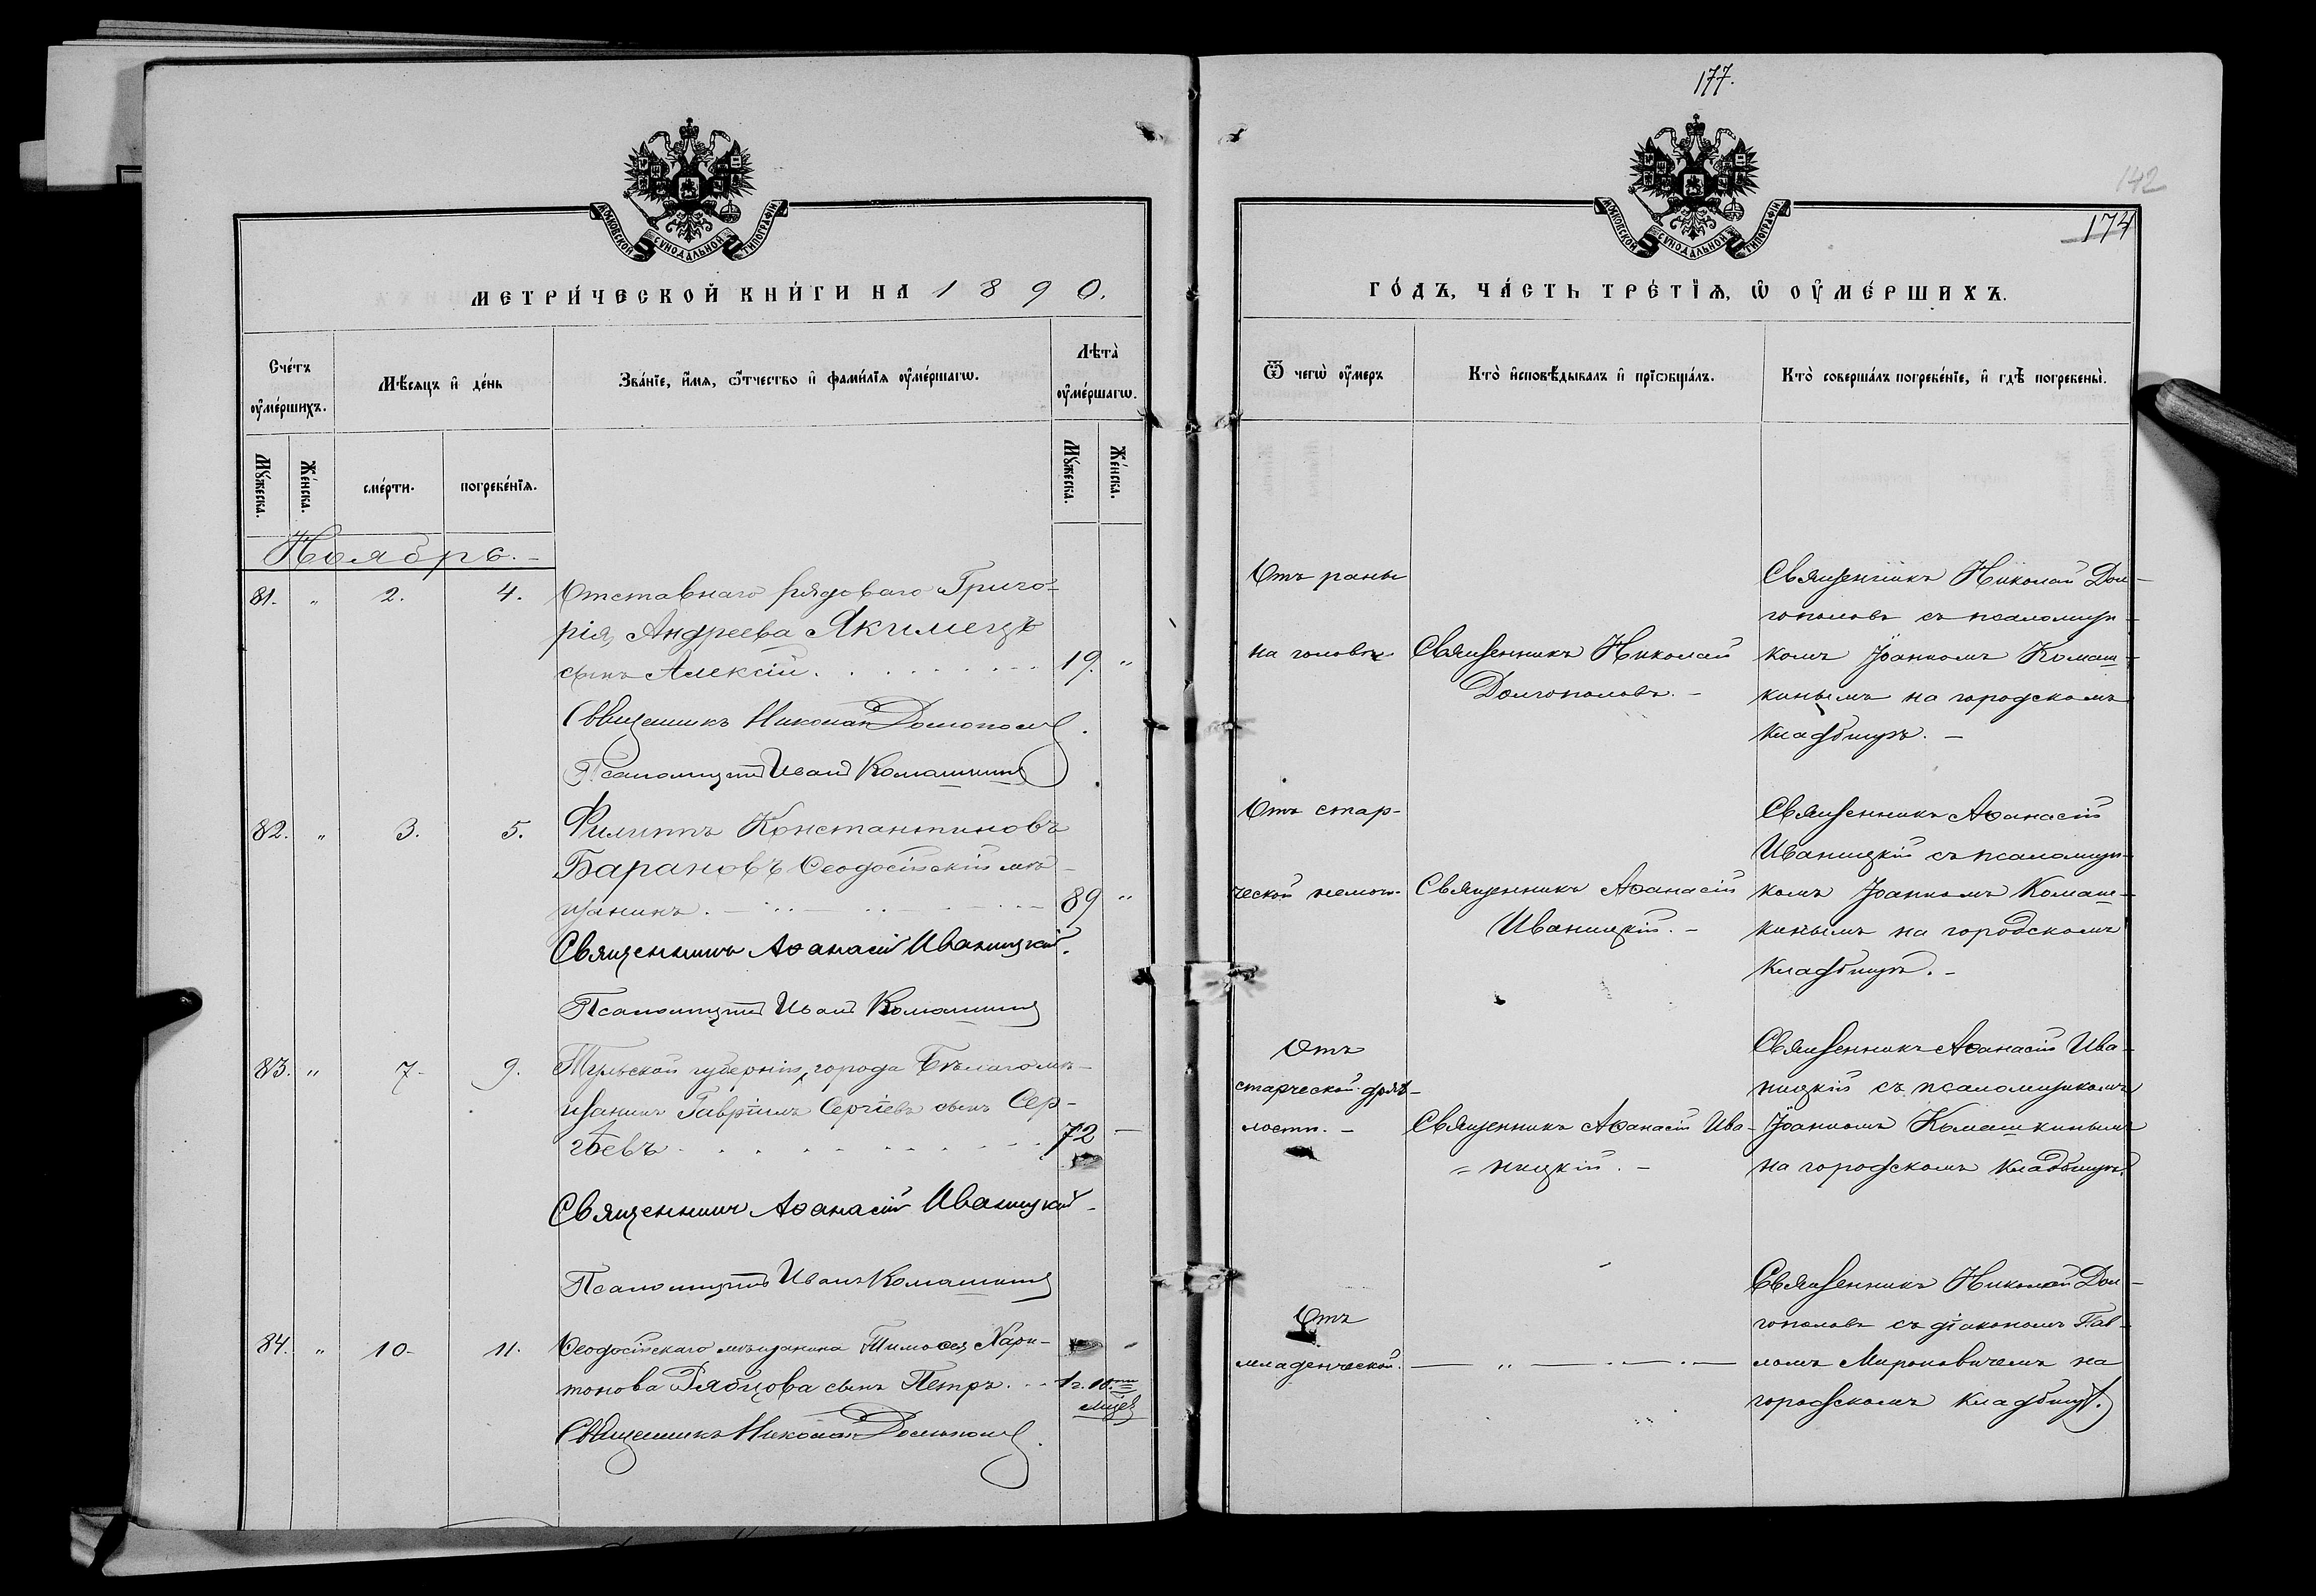 177.
142
174
МОСКОВСКОЙ СѴНОДАЛЬНОЙ ТИПОГРАФІИ
МОСКОВСКОЙ СѴНОДАЛЬНОЙ ТИПОГРАФІИ
МЕТРИ́ЧЕСКОЙ КНИ́ГИ НА 1890.
ГО́ДЪ, ЧА́СТЬ ТРЕ́ТІѦ, Ѡ ОУ҆МЕ́РШИХЪ.
Сче́тъ оу҆ме́ршихъ.
Мѣ́сяцъ и҆ де́нь
Зва́нїе, и҆́мѧ, ѻ҆́тчество и҆ фами́лїѧ оу҆ме́ршагѡ.
Лѣта̀ оу҆ме́ршагѡ.
Ѿ чегѡ̀ оу҆́меръ
Кто̀ и҆сповѣ́дывалъ и҆ прїѡбща́лъ.
Кто̀ соверша́лъ погребе́нїе, и҆ гдѣ̀ погребены̀.
Мꙋ́жеска.
Же́нска.
сме́рти.
погребе́нїѧ.
Мꙋ́жеска.
Же́нска.
Ноябрь.
81. " 2. 4. Отставнаго рядоваго Григо-
рія Андреева Якимецъ
сынъ Алексій. 19. "
Священникъ Николай Долгополовъ.
Псаломщикъ Иванъ Комашкинъ
Отъ раны
на головѣ
Священникъ Николай
Долгополовъ. –
Священникъ Николай Дол-
гополовъ съ псаломщи-
комъ Іоанномъ Комаш-
кинымъ на городскомъ
кладбищѣ. –
82. " 3. 5. Филиппъ Константиновъ
Барановъ Ѳеодосійскій мѣ-
щанинъ. 89 "
Священникъ Аѳанасій Иваницкій.
Псаломщикъ Иванъ Комашкинъ
Отъ стар-
ческой немощ.
Священникъ Аѳанасій
Иваницкій. –
Священникъ Аѳанасій
Иваницкій съ псаломщи-
комъ Іоанномъ Комаш-
кинымъ на городскомъ
кладбищѣ. –
83. " 7. 9. Тульской губерніи, города Бѣлаго мѣ-
щанинъ Гавріилъ Сергіевъ сынъ Сер-
гѣевъ 72 –
Священникъ Аѳанасій Иваницкій.
Псаломщикъ Иванъ Комашкинъ
Отъ
старческой дрях-
лости. –
Священникъ Аѳанасій Ива-
ницкій. –
Священникъ Аѳанасій Ива-
ницкій съ псаломщикомъ
Іоанномъ Комашкинымъ
на городскомъ кладбищѣ.
84. " 10. 11. Ѳеодосійскаго мѣщанина Тимоѳея Хари-
тонова Рябцова сынъ Петръ. 1 г. 10.
Священникъ Николай Долгополовъ.
Отъ
младенческой.
Священникъ Николай Дол-
гополовъ съ діакономъ Пав-
ломъ Мироновичемъ на
городскомъ кладбищѣ.